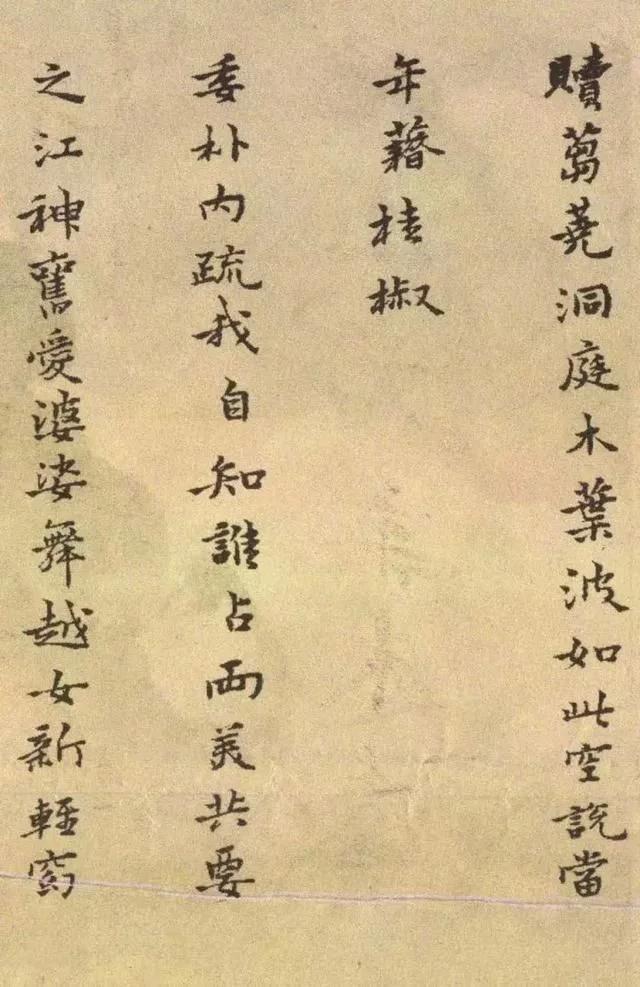 贖蒭蕘洞庭木葉波如此空說當
年藉桂椒
委朴內疏我自知誰占兩美共要
之江神舊愛婆娑舞越女新輕窈